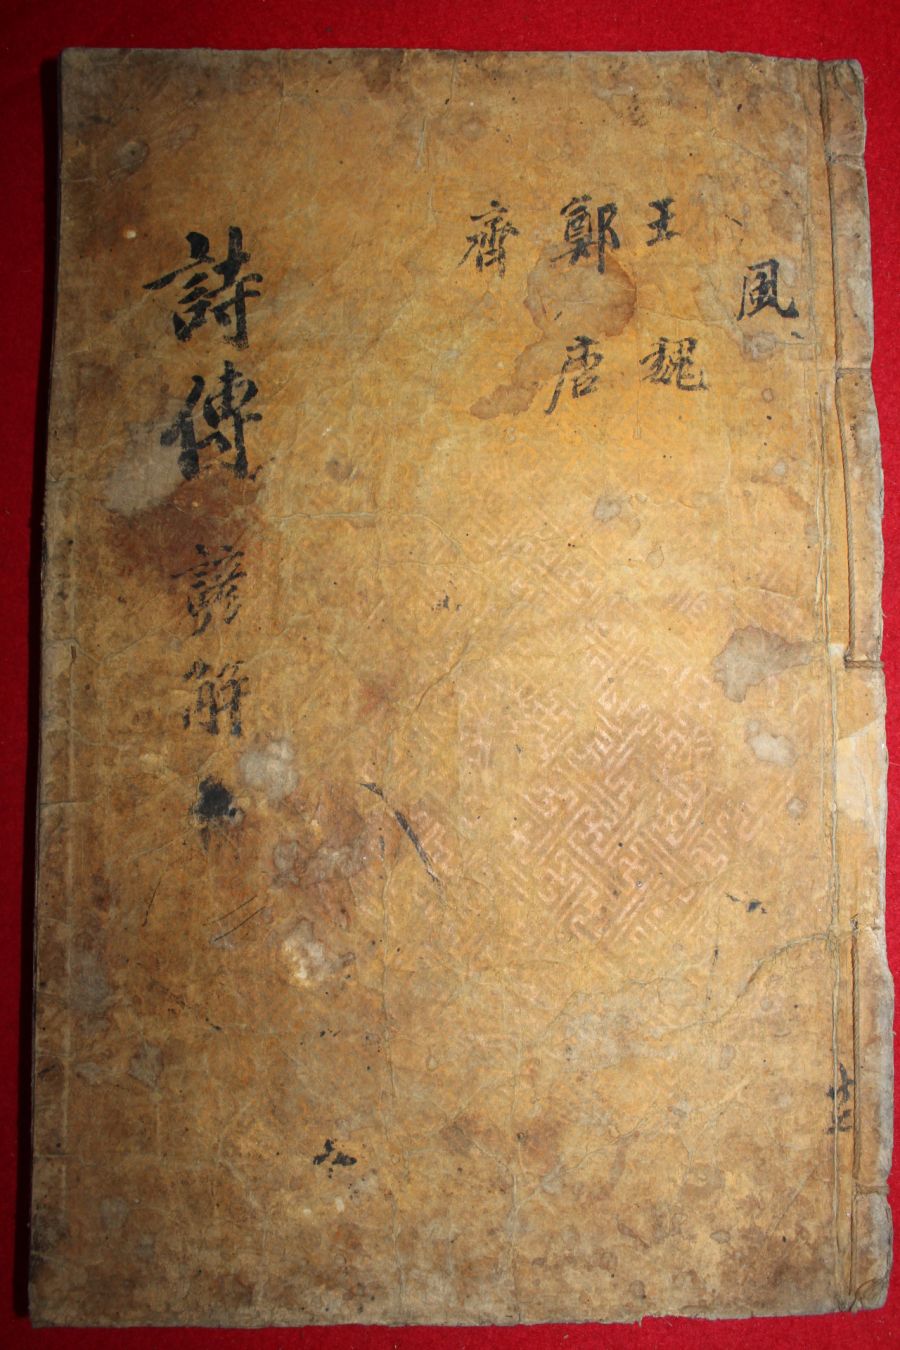 風
王 魏
鄭 唐
齊
詩傳諺解